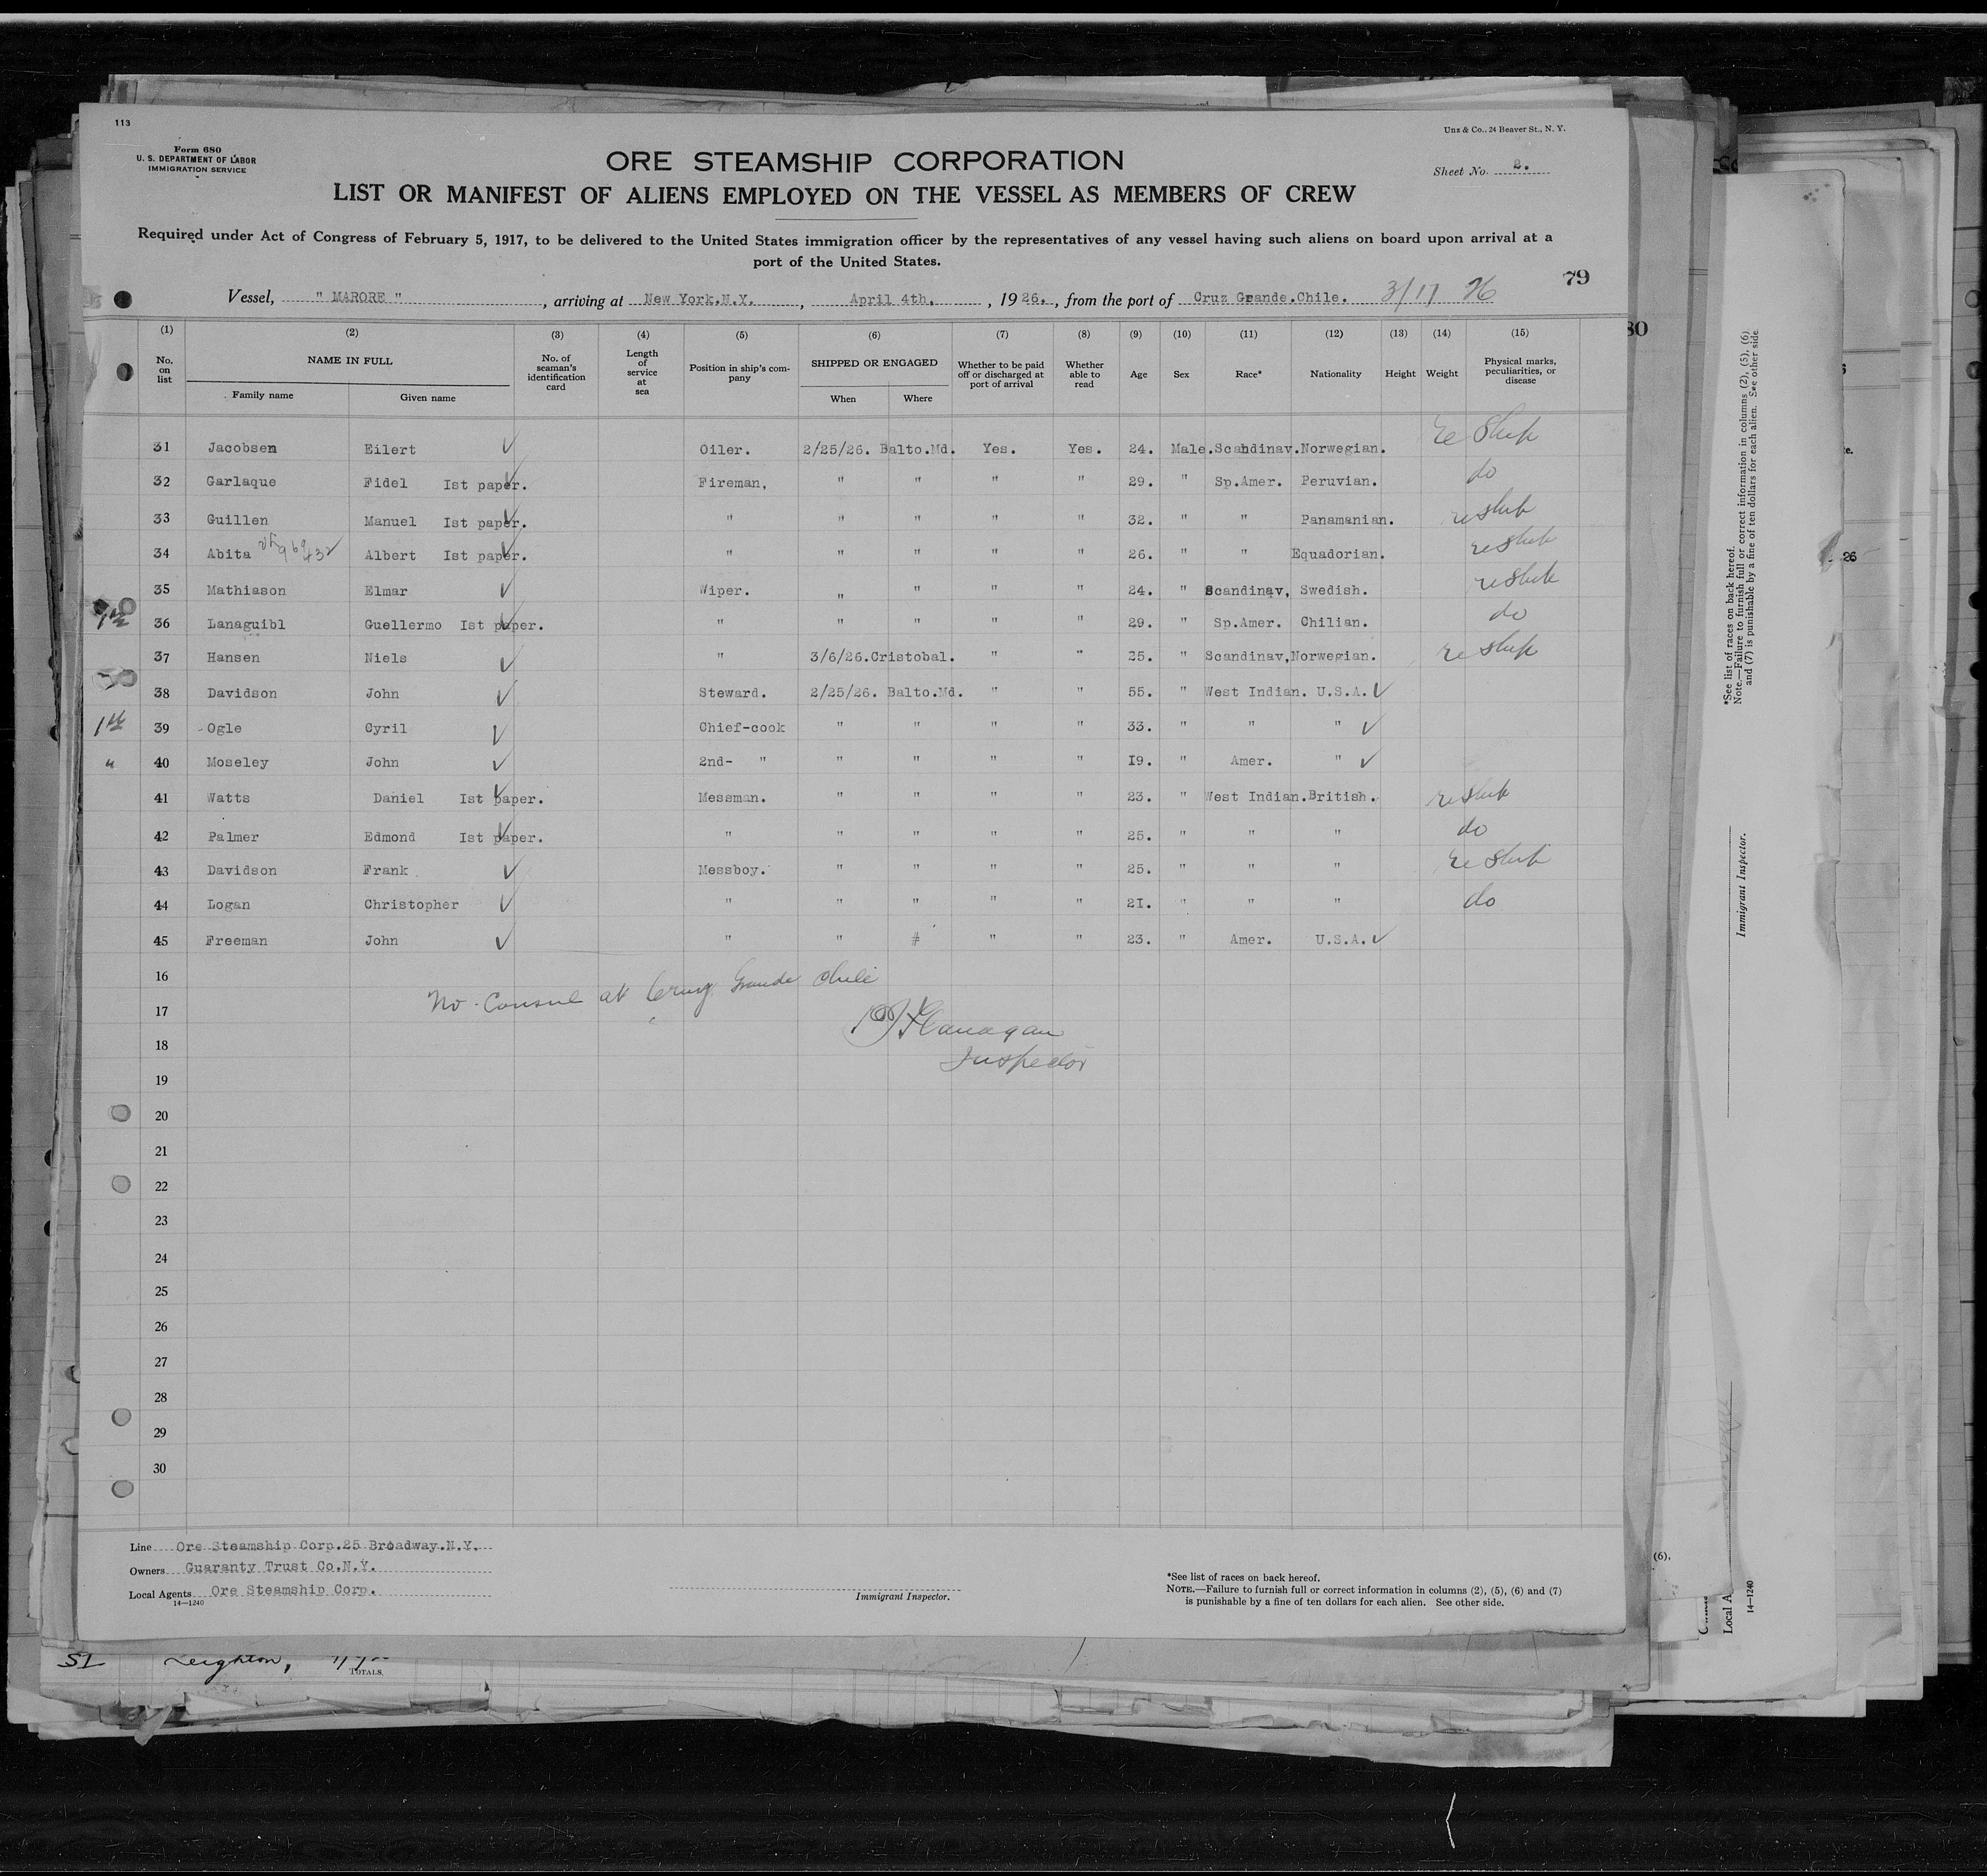 113
Form 680
U. S. DEPARTMENT OF LABOR
IMMIGRATION SERVICE
Unz & Co., 24 Beaver St., N. Y.
ORE STEAMSHIP CORPORATION
Sheet No. 2.
LIST OR MANIFEST OF ALIENS EMPLOYED ON THE VESSEL AS MEMBERS OF CREW
Required under Act of Congress of February 5, 1917, to be delivered to the United States immigration officer by the representatives of any vessel having such aliens on board upon arrival at a
port of the United States.
79
Vessel, " MARORE " , arriving at New York.N.Y. , April 4th. , 1926. , from the port of Cruz Grande.Chile. 3/17 26
80
(1) (2) (3) (4) (5) (6) (7) (8) (9) (10) (11) (12) (13) (14) (15)
No. on list NAME IN FULL Family name Given name No. of seaman's identification card Length of service at sea Position in ship's company SHIPPED OR ENGAGED When Where Whether to be paid off or discharged at port of arrival Whether able to read Age Sex Race* Nationality Height Weight Physical marks, peculiarities, or disease
31 Jacobsen Eilert ✓ Oiler. 2/25/26. Balto.Md. Yes. Yes. 24. Male. Scandinav. Norwegian. re ship
32 Garlaque Fidel Ist paper. ✓ Fireman, " " " " 29. " Sp.Amer. Peruvian. do
33 Guillen Manuel Ist paper. ✓ " " " " " 32. " " Panamanian. reship
34 Abita Albert Ist paper. ✓ " " " " " 26. " " Equadorian. reship
35 Mathiason Elmar ✓ Wiper. " " " " 24. " Scandinav, Swedish. reship
36 Lanaguibl Guellermo Ist paper. ✓ " " " " " 29. " Sp.Amer. Chilian. do
37 Hansen Niels ✓ " 3/6/26. Cristobal. " " 25. " Scandinav, Norwegian. re ship
38 Davidson John ✓ Steward. 2/25/26. Balto.Md. " " 55. " West Indian. U.S.A. ✓
39 Ogle Cyril ✓ Chief-cook " " " " 33. " " " ✓
" 40 Moseley John ✓ 2nd- " " " " " I9. " Amer. " ✓
41 Watts Daniel Ist paper. ✓ Messman. " " " " 23. " West Indian. British. reship
42 Palmer Edmond Ist paper. ✓ " " " " " 25. " " " do
43 Davidson Frank ✓ Messboy. " " " " 25. " " " re ship
44 Logan Christopher ✓ " " " " " 2I. " " " do
45 Freeman John ✓ " " # " " 23. " Amer. U.S.A. ✓
16
No Consul at Cruz Grande Chile
17
Flanagan
18
Inspector
19
20
21
22
23
24
25
26
27
28
29
30
Line Ore Steamship Corp.25 Broadway.N.Y.
Owners Guaranty Trust Co.N.Y.
Local Agents Ore Steamship Corp.
14—1240
Immigrant Inspector.
*See list of races on back hereof.
NOTE.—Failure to furnish full or correct information in columns (2), (5), (6) and (7)
is punishable by a fine of ten dollars for each alien. See other side.
*See list of races on back hereof.
Note.—Failure to furnish full or correct information in columns (2), (5), (6).
and (7) is punishable by a fine of ten dollars for each alien. See other side.
Immigrant Inspector.
26
(6),
Local A
14—1240
SI Leighton,
TOTALS.